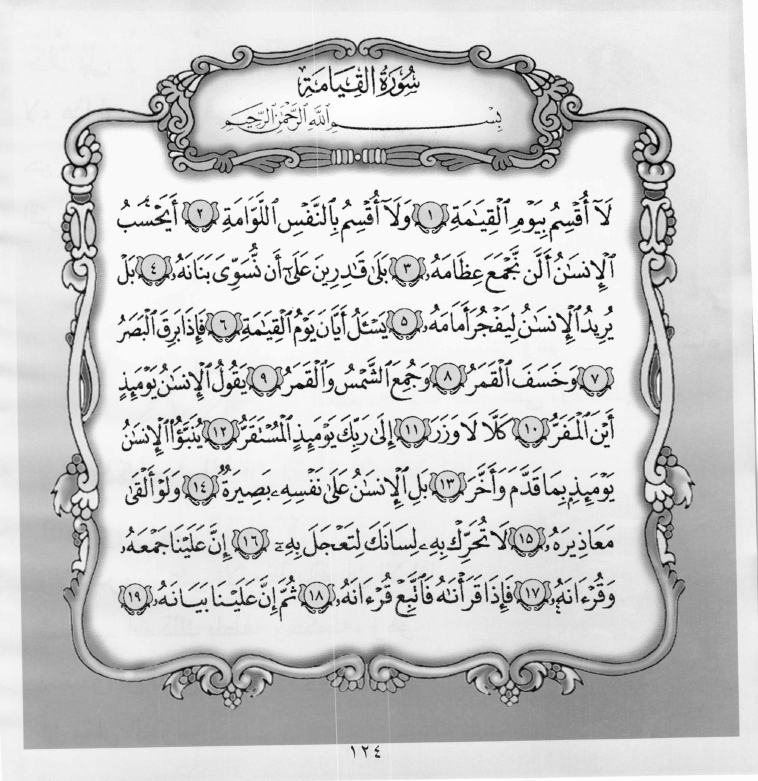 سُورَةُ القِيَامَةِ
بِسْمِ ٱللَّهِ ٱلرَّحْمَٰنِ ٱلرَّحِيمِ
لَآ أُقْسِمُ بِيَوْمِ ٱلْقِيَٰمَةِ ١ وَلَآ أُقْسِمُ بِٱلنَّفْسِ ٱللَّوَّامَةِ ٢ أَيَحْسَبُ
ٱلْإِنسَٰنُ أَلَّن نَّجْمَعَ عِظَامَهُۥ ٣ بَلَىٰ قَٰدِرِينَ عَلَىٰٓ أَن نُّسَوِّىَ بَنَانَهُۥ ٤ بَلْ
يُرِيدُ ٱلْإِنسَٰنُ لِيَفْجُرَ أَمَامَهُۥ ٥ يَسْـَٔلُ أَيَّانَ يَوْمُ ٱلْقِيَٰمَةِ ٦ فَإِذَا بَرِقَ ٱلْبَصَرُ
٧ وَخَسَفَ ٱلْقَمَرُ ٨ وَجُمِعَ ٱلشَّمْسُ وَٱلْقَمَرُ ٩ يَقُولُ ٱلْإِنسَٰنُ يَوْمَئِذٍ
أَيْنَ ٱلْمَفَرُّ ١٠ كَلَّا لَا وَزَرَ ١١ إِلَىٰ رَبِّكَ يَوْمَئِذٍ ٱلْمُسْتَقَرُّ ١٢ يُنَبَّؤُا۟ ٱلْإِنسَٰنُ
يَوْمَئِذٍۭ بِمَا قَدَّمَ وَأَخَّرَ ١٣ بَلِ ٱلْإِنسَٰنُ عَلَىٰ نَفْسِهِۦ بَصِيرَةٌ ١٤ وَلَوْ أَلْقَىٰ
مَعَاذِيرَهُۥ ١٥ لَا تُحَرِّكْ بِهِۦ لِسَانَكَ لِتَعْجَلَ بِهِۦٓ ١٦ إِنَّ عَلَيْنَا جَمْعَهُۥ
وَقُرْءَانَهُۥ ١٧ فَإِذَا قَرَأْنَٰهُ فَٱتَّبِعْ قُرْءَانَهُۥ ١٨ ثُمَّ إِنَّ عَلَيْنَا بَيَانَهُۥ ١٩
١٢٤